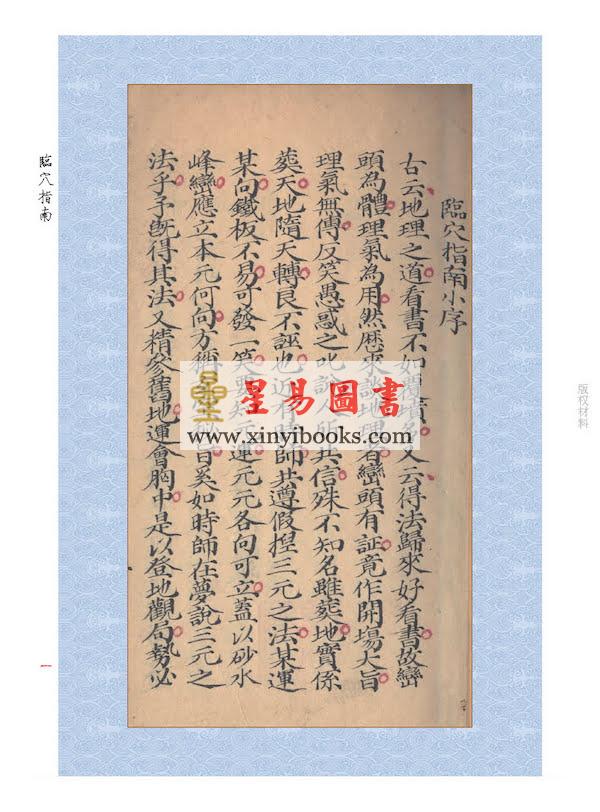 臨穴指南
臨穴指南小序
古云地理之道看書不如覆墳多又云得法歸來好看書故巒
頭為體理氣為用然歷來談地理者巒頭有証竟作開場大旨
理氣無傳反笑愚惑之此說人所共信殊不知名雖葬地實係
葬天地隨天轉良不誣也近有時師共遵假揑三元之法某運
某向鐵板不易可發一笑要知元運元元各向可立蓋以砂水
峰巒應立本元何向方稱秘旨奚如時師在夢說三元之
法乎予既得其法又精參舊地運會胸中是以登地觀局勢必
星易圖書
www.xinyibooks.com
版权材料
一